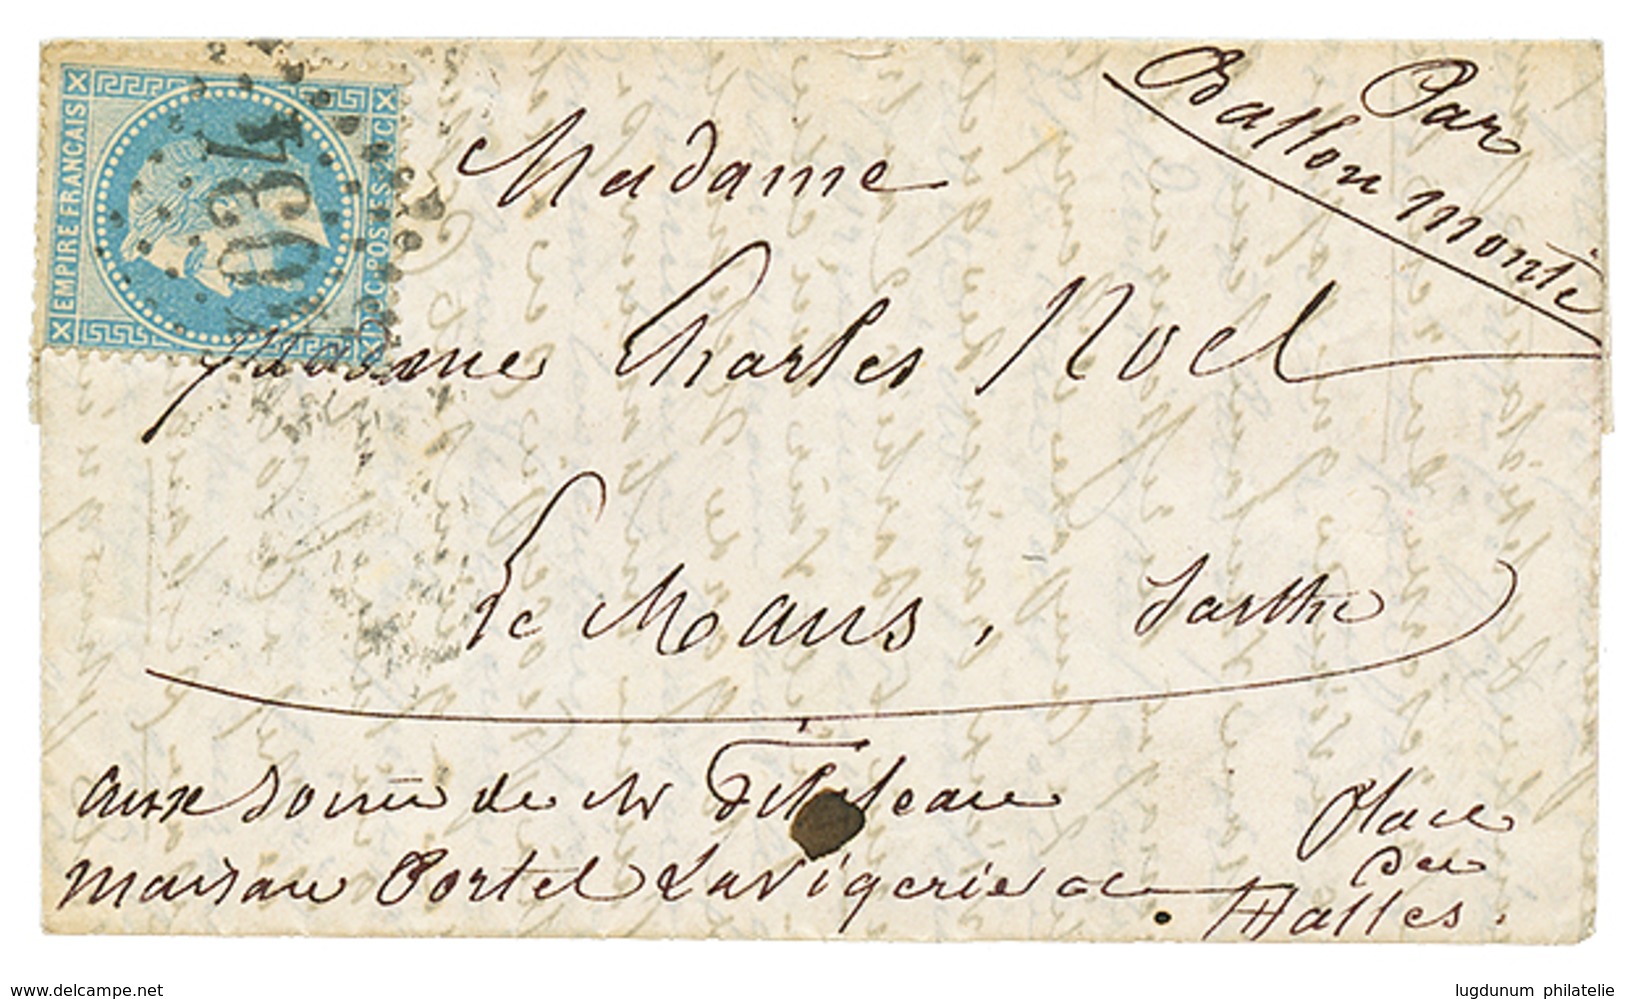 Par
Ballon monté
EMPIRE FRANCAIS
20 C POSTES 20 C
4034
Madame
Madame Charles Noel
Le Mans, Sarthe
aux soins de Mr
Maison Portel Lavigerie
Place
des
Halles.
delcampe.net
lugdunum philatelie